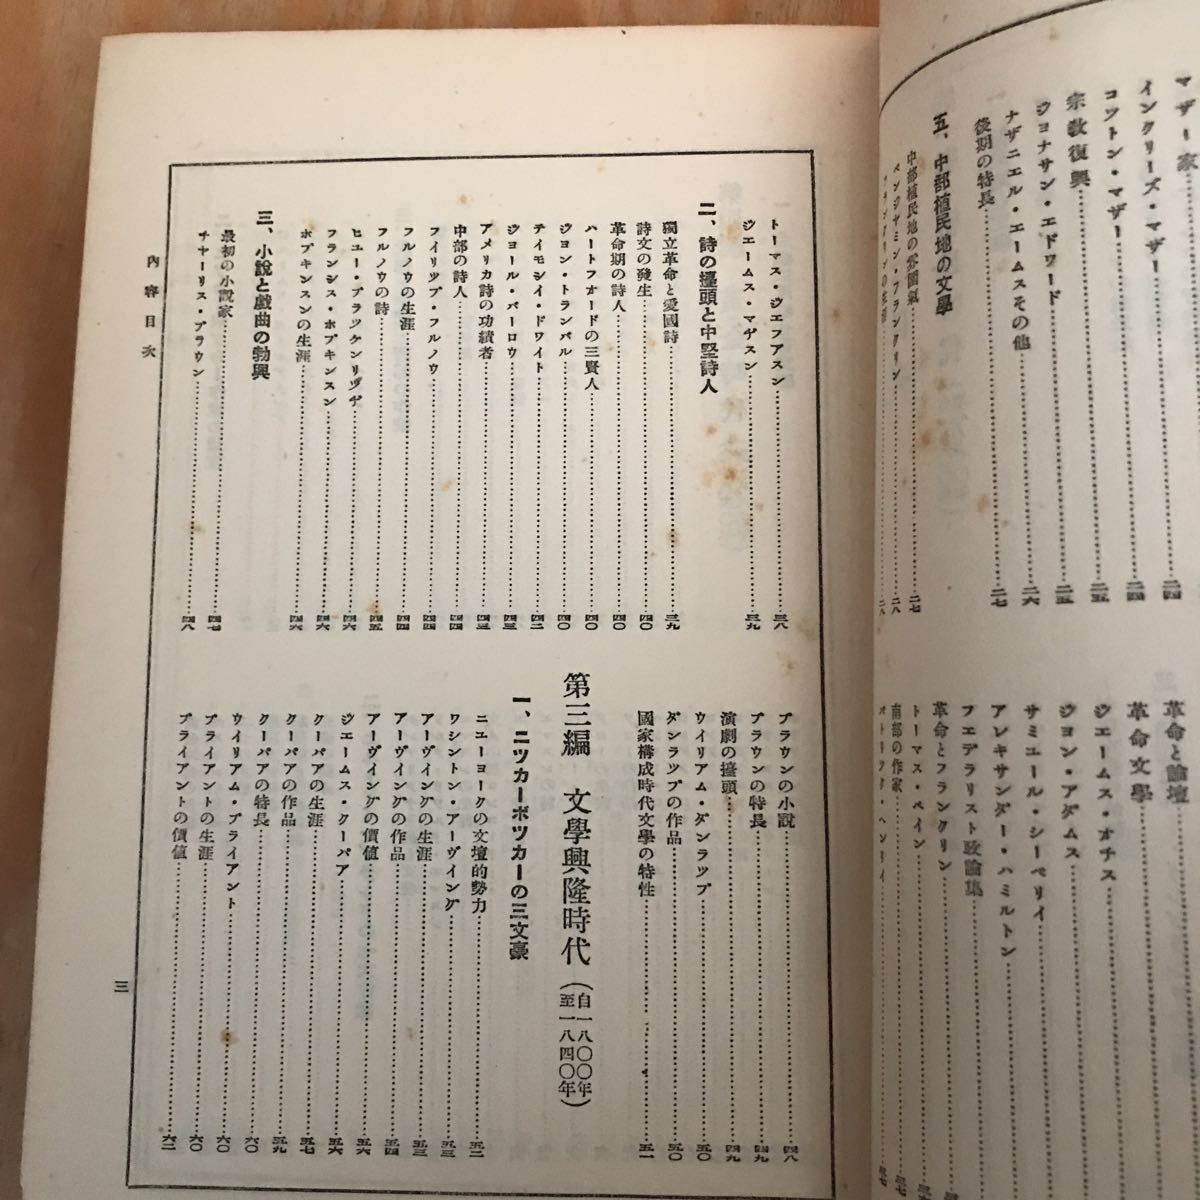 マザー家……二四
インクリーズ・マザー……二四
コツトン・マザー……二四
宗教復興……二五
ジョナサン・エドワード……二五
ナザニエル・エームスその他……二六
後期の特長……二七
五、中部植民地の文學
中部植民地の雰圍氣……二七
ベンジヤミン・フランクリン……二八
革命と論壇
革命文學
ジエームス・オチス
ジヨン・アダムス
サミユール・シーベリイ
アレキサンダー・ハミルトン
フエデラリスト政論集
革命とフランクリン
トーマス・ペイン
南部の作家
パトリツク・ヘンリイ
トーマス・ジエフアスン……三八
ジエームス・マデスン……三九
二、詩の擡頭と中堅詩人
獨立革命と愛國詩……三九
詩文の發生……四〇
革命期の詩人……四〇
ハートフオードの三賢人……四〇
ジヨン・トランバル……四〇
テイモシイ・ドワイト……四二
ジヨール・バーロウ……四三
アメリカ詩の功績者……四三
中部の詩人……四四
フイリツプ・フルノウ……四四
フルノウの生涯……四四
フルノウの詩……四五
ヒユー・ブラツケンリツヂ……四六
フランシス・ホプキンスン……四六
ホプキンスンの生涯……四六
三、小說と戲曲の勃興
最初の小說家……四七
チヤーリス・ブラウン……四八
ブラウンの小說……四八
ブラウンの特長……四九
演劇の擡頭……四九
ウイリアム・ダンラツプ……五〇
ダンラツプの作品……五〇
國家構成時代文學の特性……五一
第三編 文學興隆時代(自一八〇〇年至一八四〇年)
一、ニツカーボツカーの三文豪
ニユーヨークの文壇的勢力……五二
ワシントン・アーヴイング……五三
アーヴイングの生涯……五三
アーヴイングの作品……五四
アーヴイングの價値……五六
ジエームス・クーパア……五六
クーパアの生涯……五七
クーパアの作品……五九
クーパアの特長……六〇
ウイリアム・ブライアント……六〇
ブライアントの生涯……六〇
ブライアントの價値……六二
內容目次
三